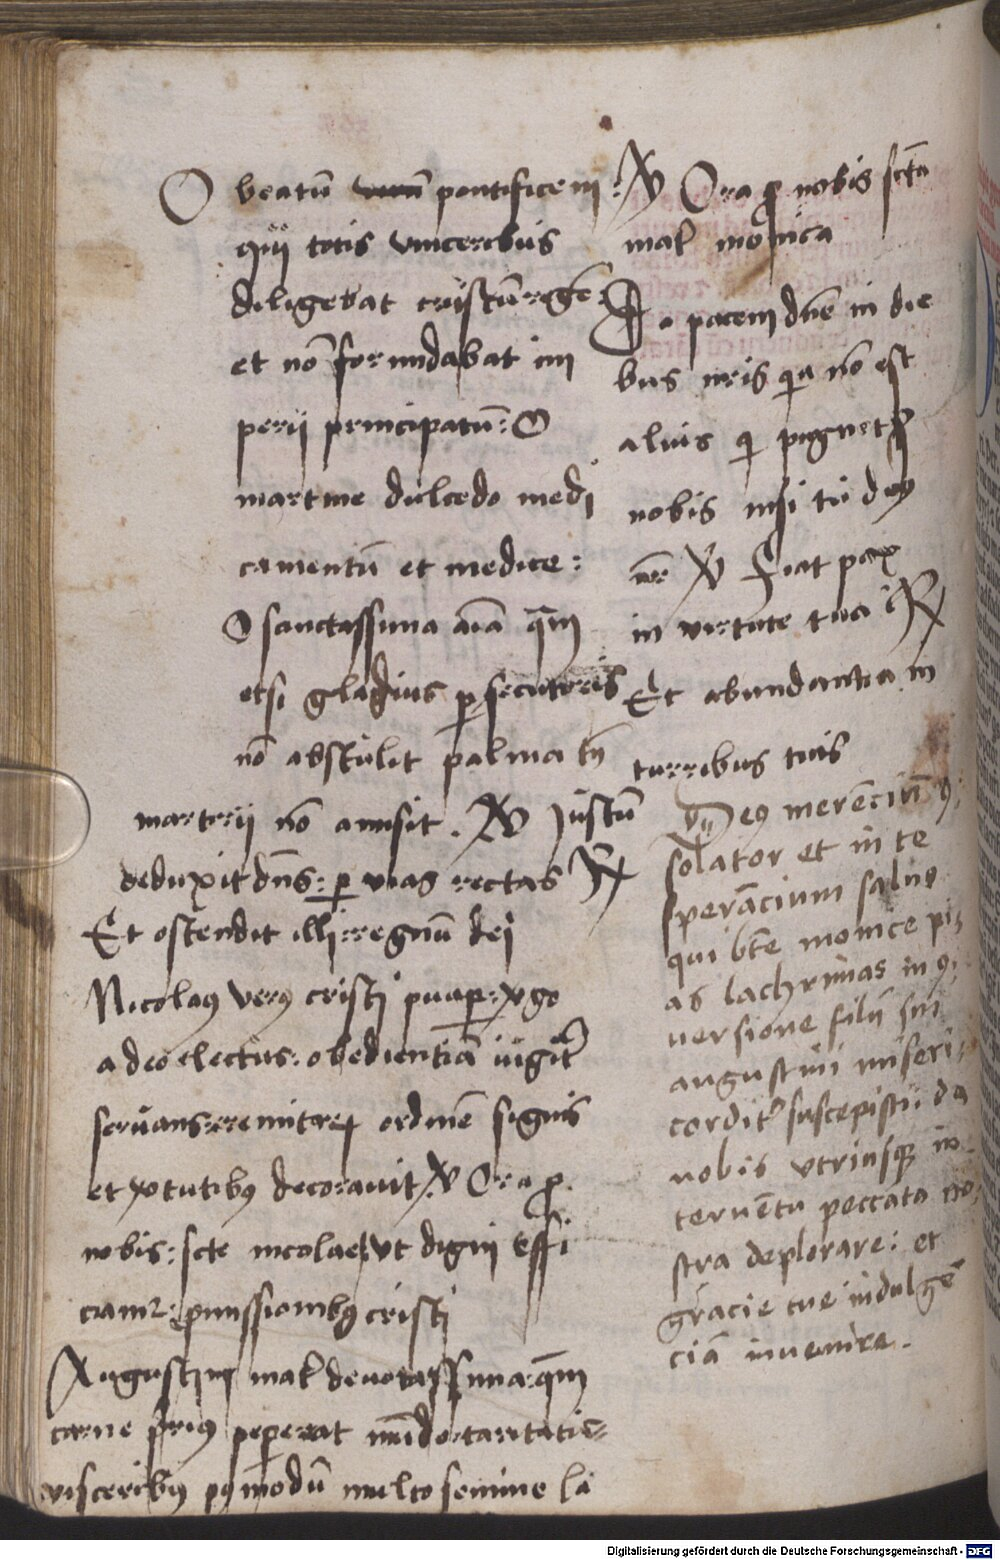 O beatū pontificem :
qui totis visceribus
diligebat cristū regē :
et nō formidabat im
perii principatū : O
martine dulcedo medi
camentū et medice :
O sanctissima aīa quā
etsi gladius persecutoris
nō abstulit palmā tn̄
martirii nō amisit . V Justū
deduxit dn̄s : per vias rectas R
Et ostendit illi : regnū dei
Nicolaus verus cristi pauper : virgo
a deo electus : obedientiā
servans : ordinē signis
et virtutibus decoravit : V Ora pro
nobis : scte nicolae ut digni effi
ciamur : promissionibus cristi
Augustini mater devotissima : quā
carne prius peperat mūdo : caritatis
visceribus multo semine la
V Ora pro nobis scta
mater monica
Da pacem dn̄e in die
bus nr̄is quia nō est
alius qui pugnet pro
nobis nisi tu deus
nr̄ V Fiat pax
in virtute tua R
Et abundantia in
turribus tuis
Deus merenciū con
solator et in te
sperācium salus
qui bte monice pi
as lachrimas in con
versione filii sui
augustini miseri
corditer suscepisti : da
nobis utriusque in
tervētu peccata no
stra deplorare : et
gracie tue indulgē
ciā invenire .
Digitalisierung gefördert durch die Deutsche Forschungsgemeinschaft - DFG